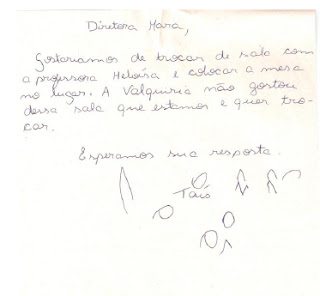 Diretora Mara,
Gostaríamos de trocar de sala com
a professora Heloísa e colocar a mesa
no lugar. A Valquiria não gostou
dessa sala que estamos e quer tro-
car.
Esperamos sua resposta.